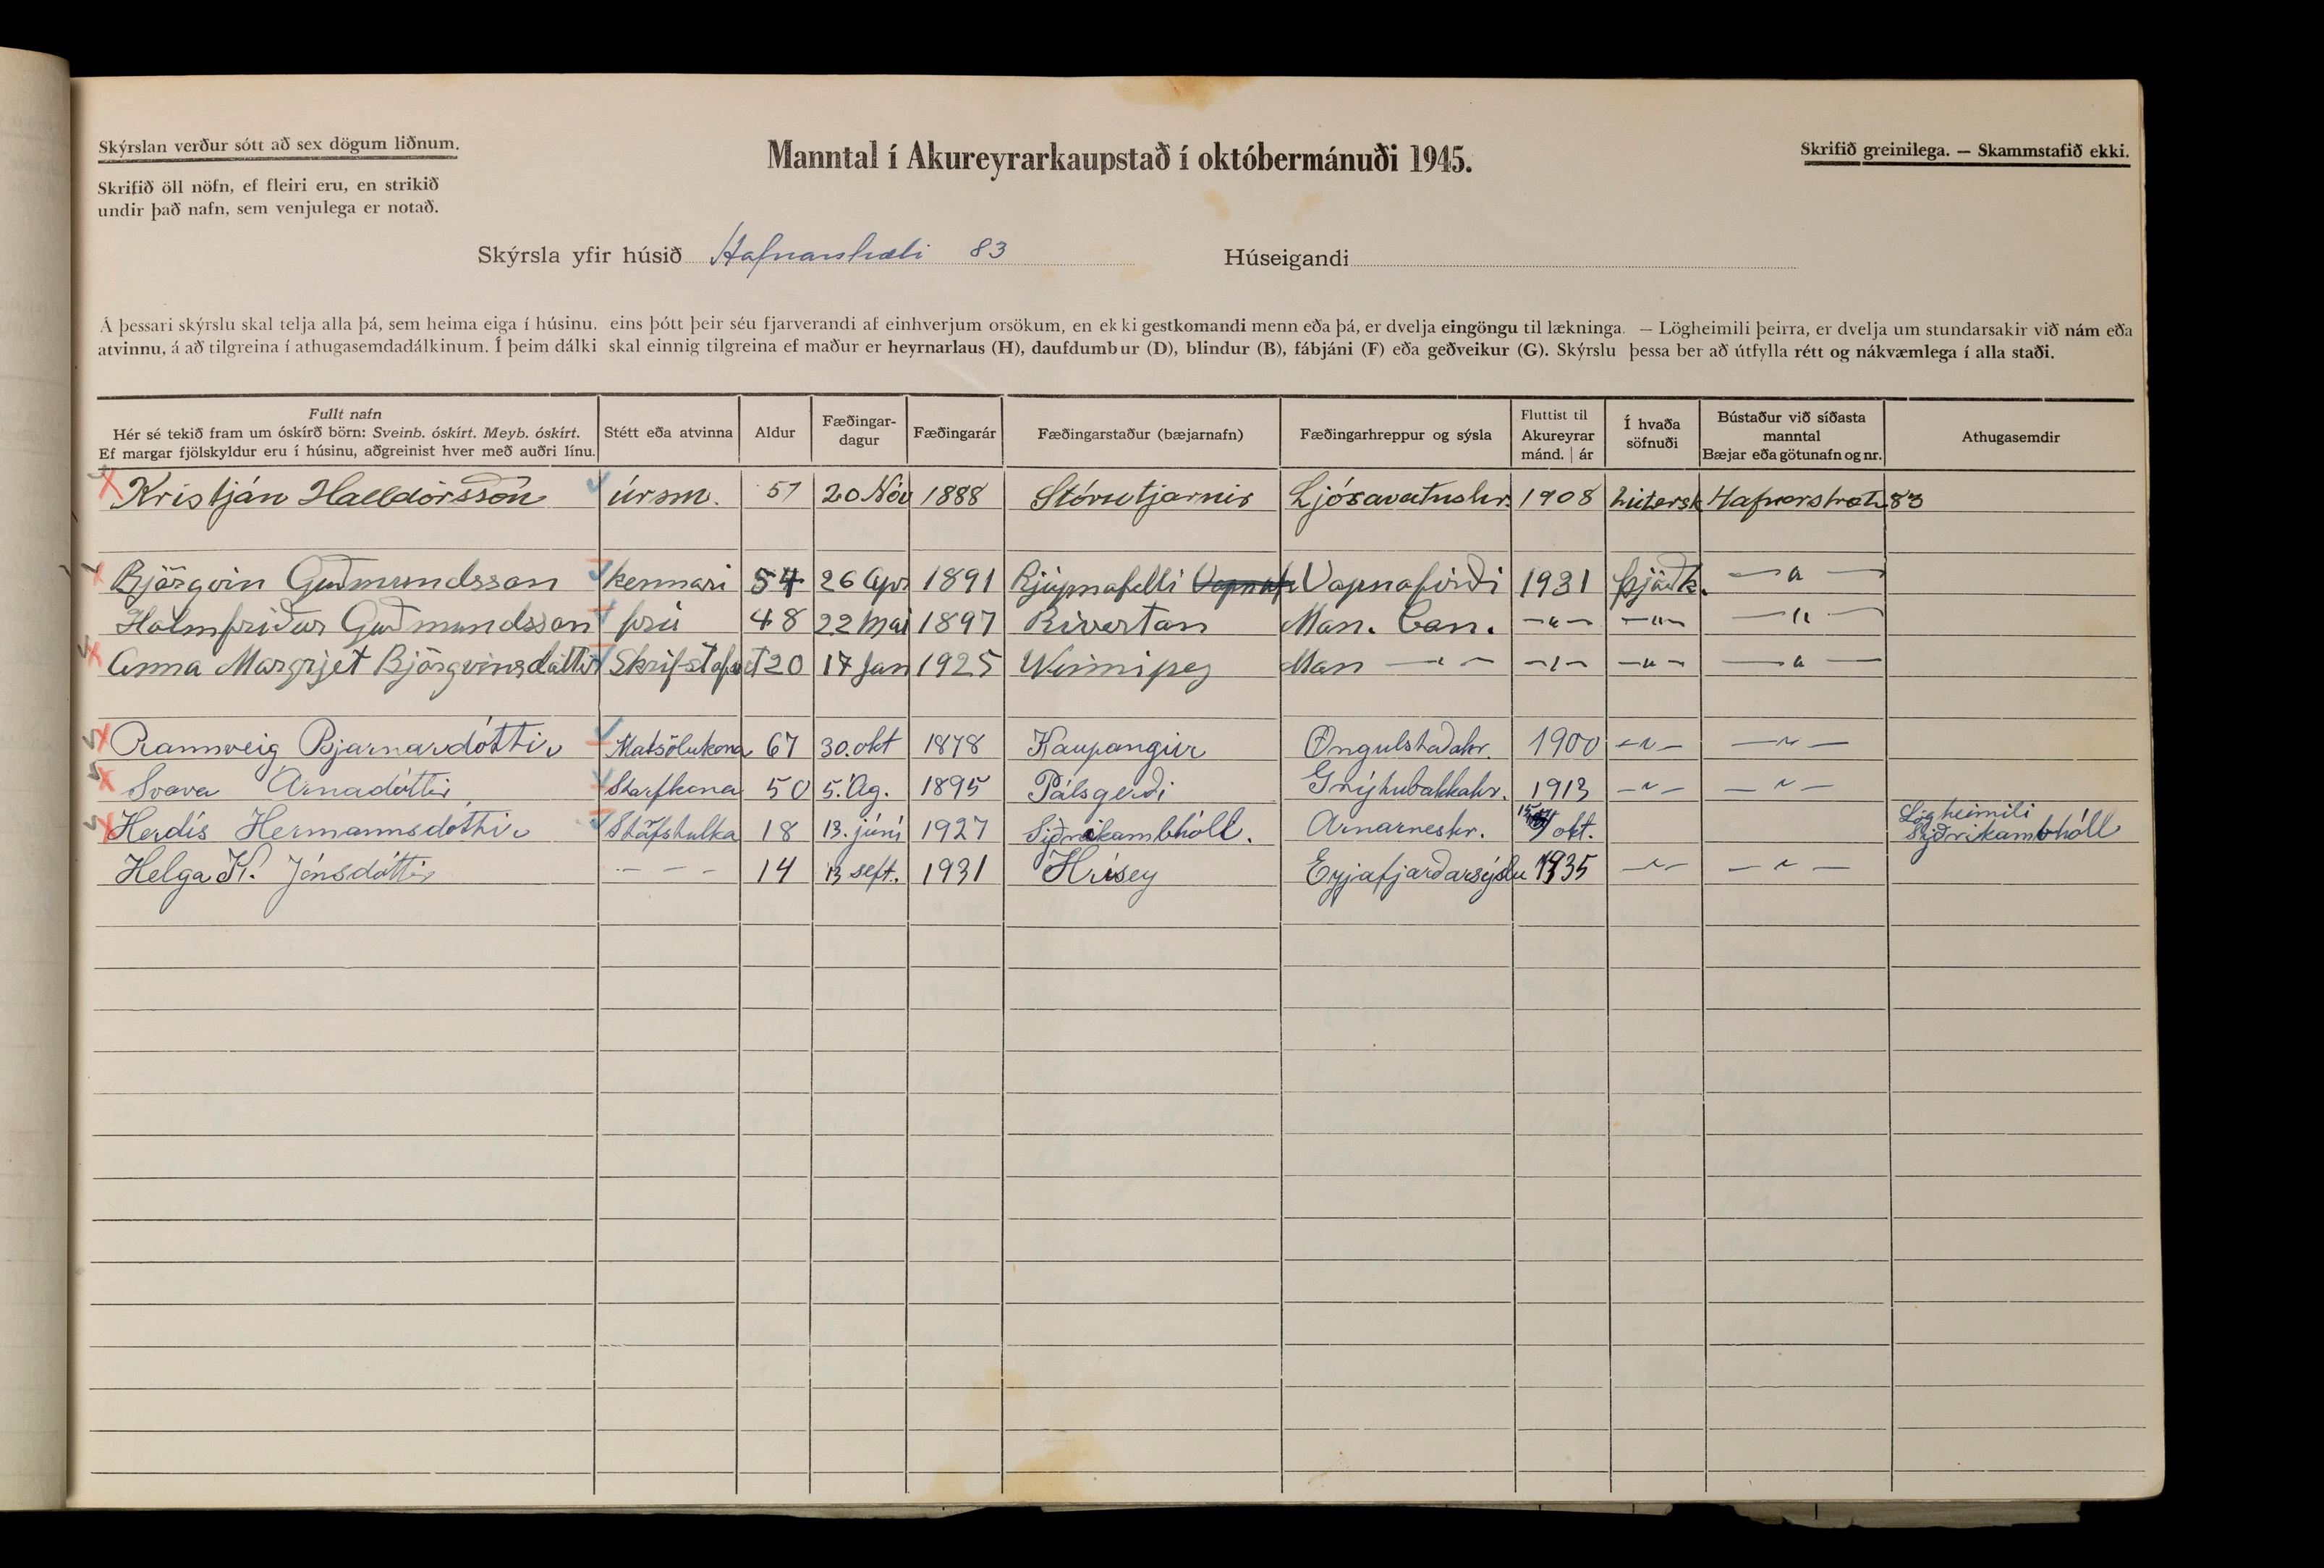 Skýrslan verður sótt að sex dögum liðnum.
Skrifið öll nöfn, ef fleiri eru, en strikið
undir það nafn, sem venjulega er notað.
Manntal í Akureyrarkaupstað í októbermánuði 1945.
Skrifið greinilega. — Skammstafið ekki.
Skýrsla yfir húsið Hafnarstræti 83 Húseigandi
Á þessari skýrslu skal telja alla þá, sem heima eiga í húsinu, eins þótt þeir séu fjarverandi af einhverjum orsökum, en ekki gestkomandi menn eða þá, er dvelja eingöngu til lækninga. — Lögheimili þeirra, er dvelja um stundarsakir við nám eða
atvinnu, á að tilgreina í athugasemdadálkinum. Í þeim dálki skal einnig tilgreina ef maður er heyrnarlaus (H), daufdumbur (D), blindur (B), fábjáni (F) eða geðveikur (G). Skýrslu þessa ber að útfylla rétt og nákvæmlega í alla staði.
Fullt nafn
Hér sé tekið fram um óskírð börn: Sveinb. óskírt. Meyb. óskírt.
Ef margar fjölskyldur eru í húsinu, aðgreinist hver með auðri línu.
Stétt eða atvinna
Aldur
Fæðingar-
dagur
Fæðingarár
Fæðingarstaður (bæjarnafn)
Fæðingarhreppur og sýsla
Fluttist til
Akureyrar
mánd. | ár
Í hvaða
söfnuði
Bústaður við síðasta
manntal
Bæjar eða götunafn og nr.
Athugasemdir
Kristján Halldórsson úrsm. 57 20 Nóv 1888 Stórutjarnir Ljósavatnshr. 1908 Lútersk Hafnarstræti 83
Björgvin Guðmundsson kennari 54 26 Apr 1891 Rjúpnafelli Vopnafirði 1931 Þjóðk. — " —
Hólmfríður Guðmundsson frú 48 22 Maí 1897 Rivertan Man. Can. — " — — " — — " —
Anna Margrjet Björgvinsdóttir 20 17 Jan 1925 Winnipeg Man — " — — " — — " — — " —
Rannveig Bjarnardóttir Matsölukona 67 30. okt 1878 Kaupangur Öngulstaðahr. 1900 — " — — " —
Svava Árnadóttir Starfkona 50 5. Ág. 1895 Pálsgerði Grýtubakkahr. 1913 — " — — " —
Herdís Hermannsdóttir 18 13. júní 1927 Arnarneshr. okt. Lögheimili
Helga K. Jónsdóttir — — — 14 13 sept. 1931 Hrísey Eyjafjarðarsýslu 1935 — " — — " —